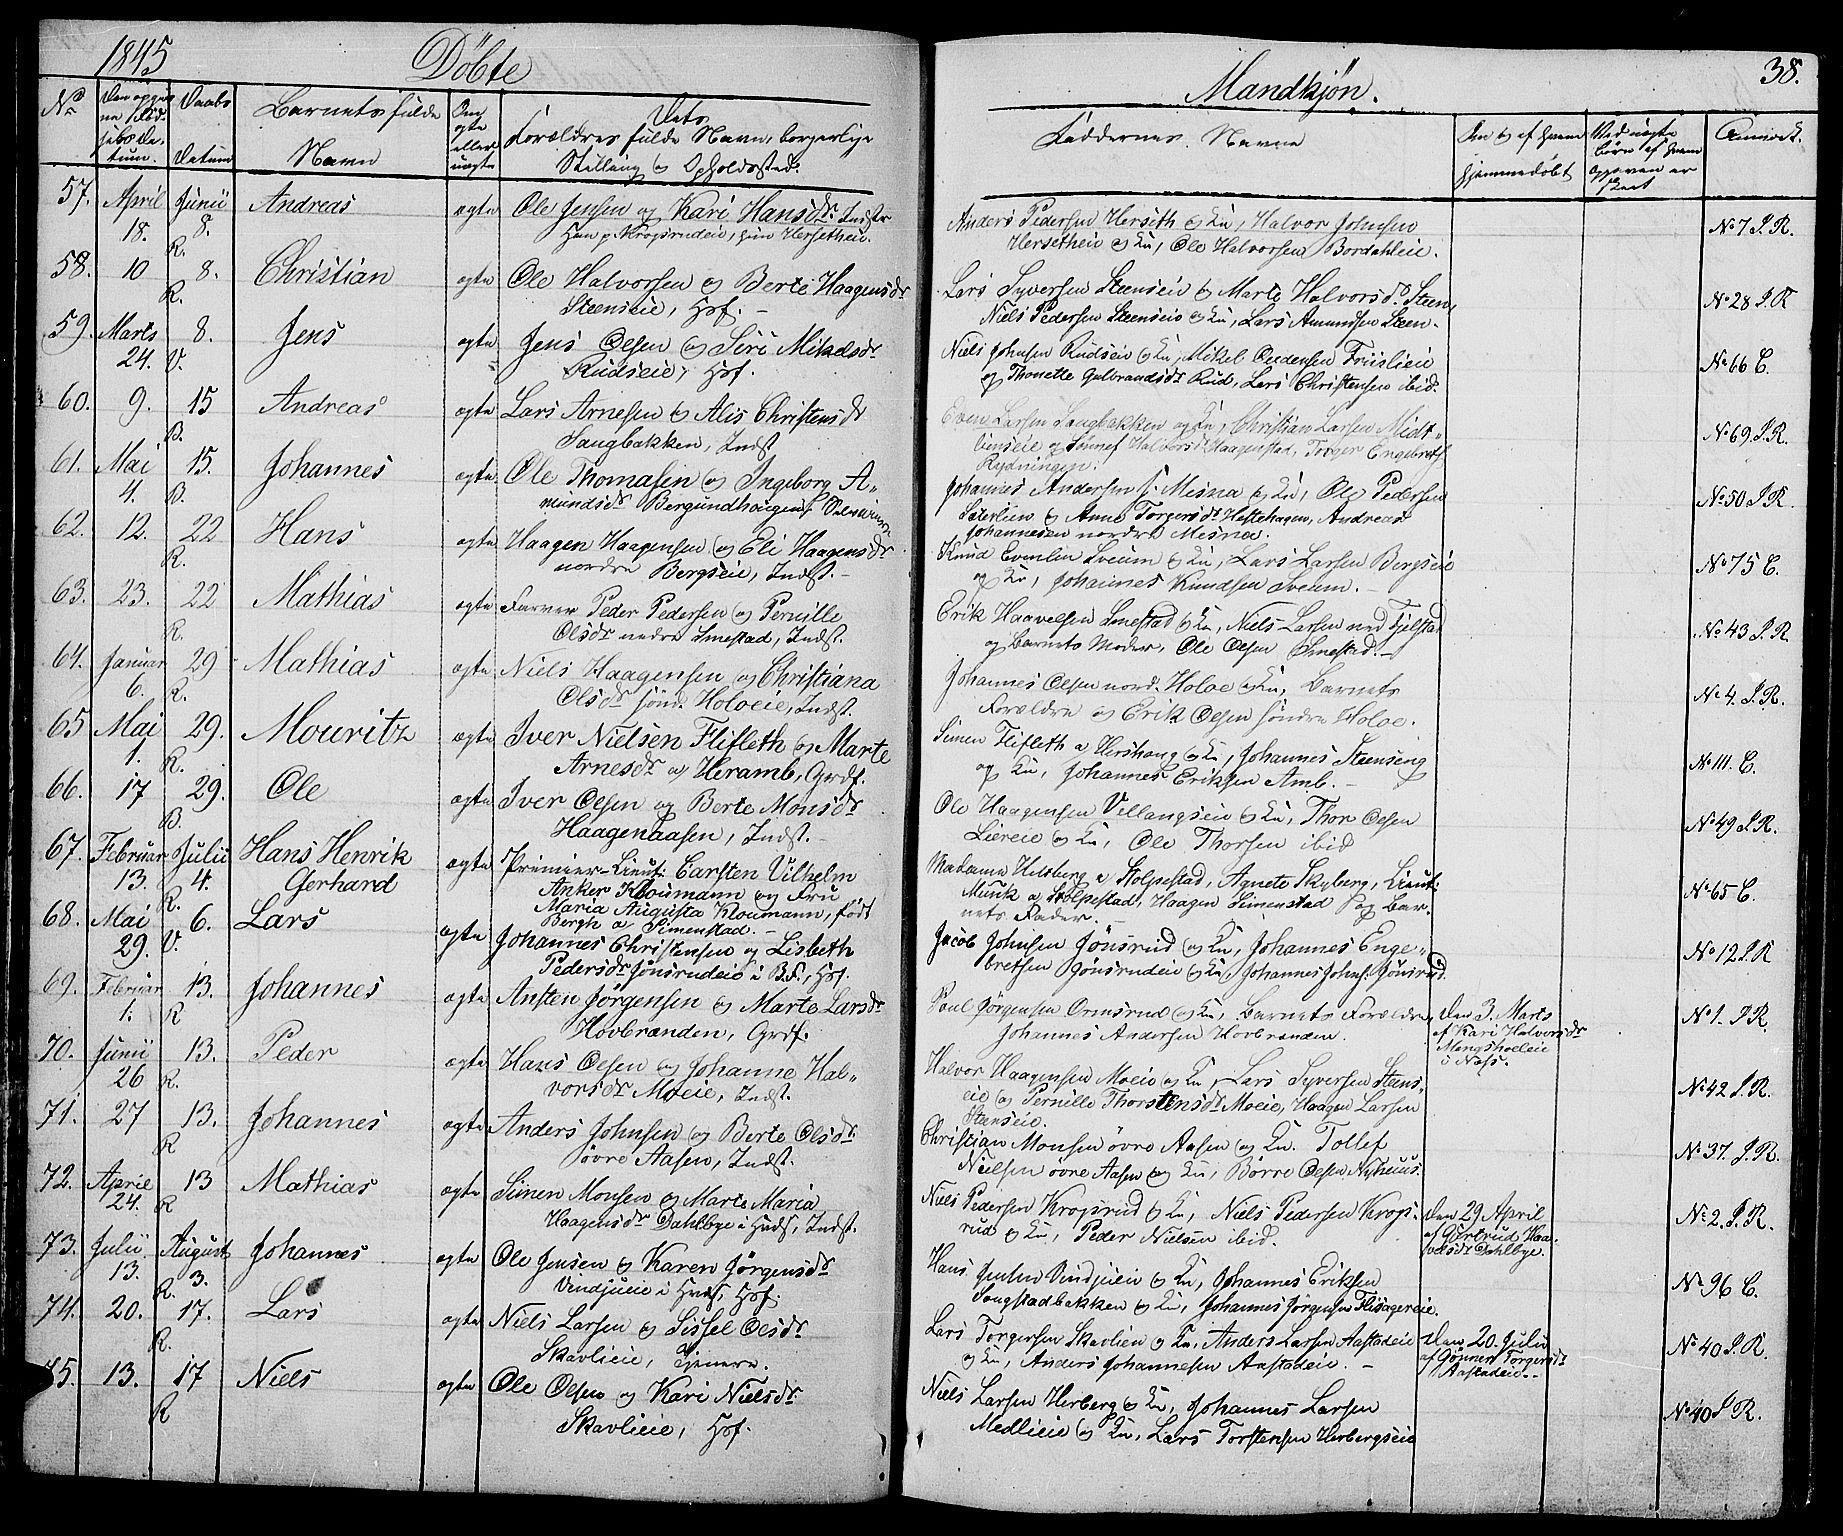 1845 Döbte
Mandkjön. 38.
No Den opgivne Födselsdatum. Daabs Datum Barnets fulde Navn Om ægte eller uægte Dets Forældres fulde Navn, borgerlige Stilling og Opholdssted.
Faddernes Navne Naar og af hvem hjemmedöbt Ved uægte börn af hvem opgaven er skeet Anmærk.
57. April 18. Junii 8. R. Andreas ægte Ole Jensen og Kari Hansdr. Indster
Han p. Kropsrudeie, hun Hersetheie.
Anders Pedersen Herseth og Ku, Halvor Johnsen
Hersetheie og Ku, Ole Halvorsen Bordahleie. No 7 I. R.
58. 10 8. R. Christian ægte Ole Halvorsen og Berte Haagensdr
Steenseie, Hsf. -
Lars Syversen Steenseie og Marte Halvorsdr. Steen,
Niels Pedersen Steenseie og Ku, Lars Amundsen Steen. No 28 I. R
59. Marts 24. 8. V. Jens ægte Jens Olsen og Siri Mikelsdr
Rudseie, Hsf.
Niels Johnsen Rudseie og Ku, Mikel Pedersen Friislieie
og Thonette Gulbrandsdr Rud, Lars Christensen ibid. No 66 C.
60. 9. 15 B. Andreas ægte Lars Arnesen og Alis Christensdr
Saugbakken, Indst
Even Larsen Saugbakken og Ku, Christian Larsen Midt-
lienseie og Sünnef Halvorsdr Haagenstad, Torger Engebrets.
Rydningen. No 69. I. R.
61. Mai 4. 15. B. Johannes ægte Ole Thomasen og Ingeborg A-
mundsdr Bergundhaugen,
Johannes Andersen s. Mesna og Ku, Ole Pedersen
Sæterlien og Anne Torgersdr. Heftehagen, Andreas
Johannesen nordre Mesna. No 50 I. R
62. 12. 22 R. Hans ægte Haagen Haagensen og Eli Haagensdr
nordre Bergseie, Indst. -
Knud Evenlien Sveum og Ku, Lars Larsen Bergseie
og Ku, Johannes Knudsen Sveum. - No 75 C.
63. 23. 22 R. Mathias ægte Farver Peder Pedersen og Pernille
Olsdr nedre Smestad, Indst.
Erik Haavelsen Smestad og Ku, Niels Larsen ned Fjelstad
og Barnets Moder, Ole Olsen Smestad. - No 43 I. R.
64. Januar 6. 29 R. Mathias ægte Niels Haagensen og Christiana
Olsdr sönd. Holoeie, Indst.
Johannes Olsen nord. Holoe og Ku, Barnets
Forældre og Erik Olsen söndre Holoe. No 4. I. R.
65 Mai 1. 29. R. Mouritz ægte Iver Nielsen Flifleth og Marte
Arnesdr af Heramb, Grdf.
Simen Flifleth a Hershaug og Ku, Johannes Steenseng
og Ku, Johannes Eriksen Amb. - No 111. C.
66. 17 29. B. Ole ægte Iver Olsen og Berte Monsdr
Haagenaasen, Indst.
Ole Haagensen Vellangseie og Ku, Thor Olsen
Liereie og Ku, Ole Thorsen ibid No 49 I. R.
67. Februar 13. Julii 4. R. Hans Henrik
Gerhard ægte Primier-Lieut: Carsten Vilhelm
Anker Kloumann og Fru
Maria Augusta Kloumann, födt
Bergh a Simenstad. -
Madame Helsberg a Stolpestad, Agnete Skyberg, Lieut:
Munk a Stolpestad, Haagen Simenstad og Bar-
nets Fader. - No 65 C.
68. Mai 29. 6. V. Lars ægte Johannes Christensen og Lisbeth
Pedersdr Jönsrudeie i B.F., Hsf.
Jacob Johnsen Jönsrud og Ku, Johannes Enge-
bretsen Jönsrudeie og Ku, Johannes Johns. Jönsrud. No 12 I. R
69. Februar 1. 13. R Johannes ægte Ansten Jörgensen og Marte Larsdr
Hovbranden, Grdf.
Poul Jörgensen Ormsrud og Ku, Barnets Forældre,
Johannes Andersen Hovbranden. Den 3. Marts
af Kari Halvorsdr
Mengshoeleie
i Næs. No 1. I R.
70. Junii 26 13. R. Peder ægte Hans Olsen og Johanne Hal-
vorsdr Moeie, Indst.
Halvor Haagensen Moeie og Ku, Lars Syversen Steens-
eie og Pernille Thorstensdr Moeie, Haagen Larsen
Steenseie. No 42 I. R.
71. 27 13. R Johannes ægte Anders Johnsen og Berte Olsdr.
övre Aasen, Indst.
Christian Monsen övre Aasen og Ku. Tollef
Nielsen övre Aasen og Ku, Börre Olsen Nyhuus. No 37. I. R.
72. April 24. 13 R Mathias ægte Simen Monsen og Marte Maria
Haagensdr Dahlbye i Hvds, Indst.
Niels Pedersen Kropsrud og Ku, Niels Pedersen Krops-
rud og Ku, Peder Nielsen ibid. Den 29 April
af Gjertrud Haa-
velsdr Dahlbye. No 2. I. R.
73. Julii 13. August 3. R. Johannes ægte Ole Jensen og Karen Jörgensdr
Vindjueie i Hvds, Hsf.
Hans Jensen Vindjueie og Ku, Johannes Eriksen
Saugstadbakken og Ku, Johannes Jörgensen Flisagereie. No 96 C.
74. 20. 17. R. Lars ægte Niels Larsen og Sissel Olsdr
Skavlieie, Tjenere.
Lars Torgersen Skavlien og Ku, Anders Larsen Aastadeie
og Ku, Anders Johannesen Aastadeie. - Den 20. Julii
af Gönner Torgersdr
Aastadeie. - No 40 I. R.
75. 13. 17 R Niels ægte Ole Olsen og Kari Nielsdr.
Skavlieie, Hsf.
Niels Larsen Herberg og Ku, Johannes Larsen
Medlieie og Ku, Lars Torstensen Herbergseie No 40 I. R.